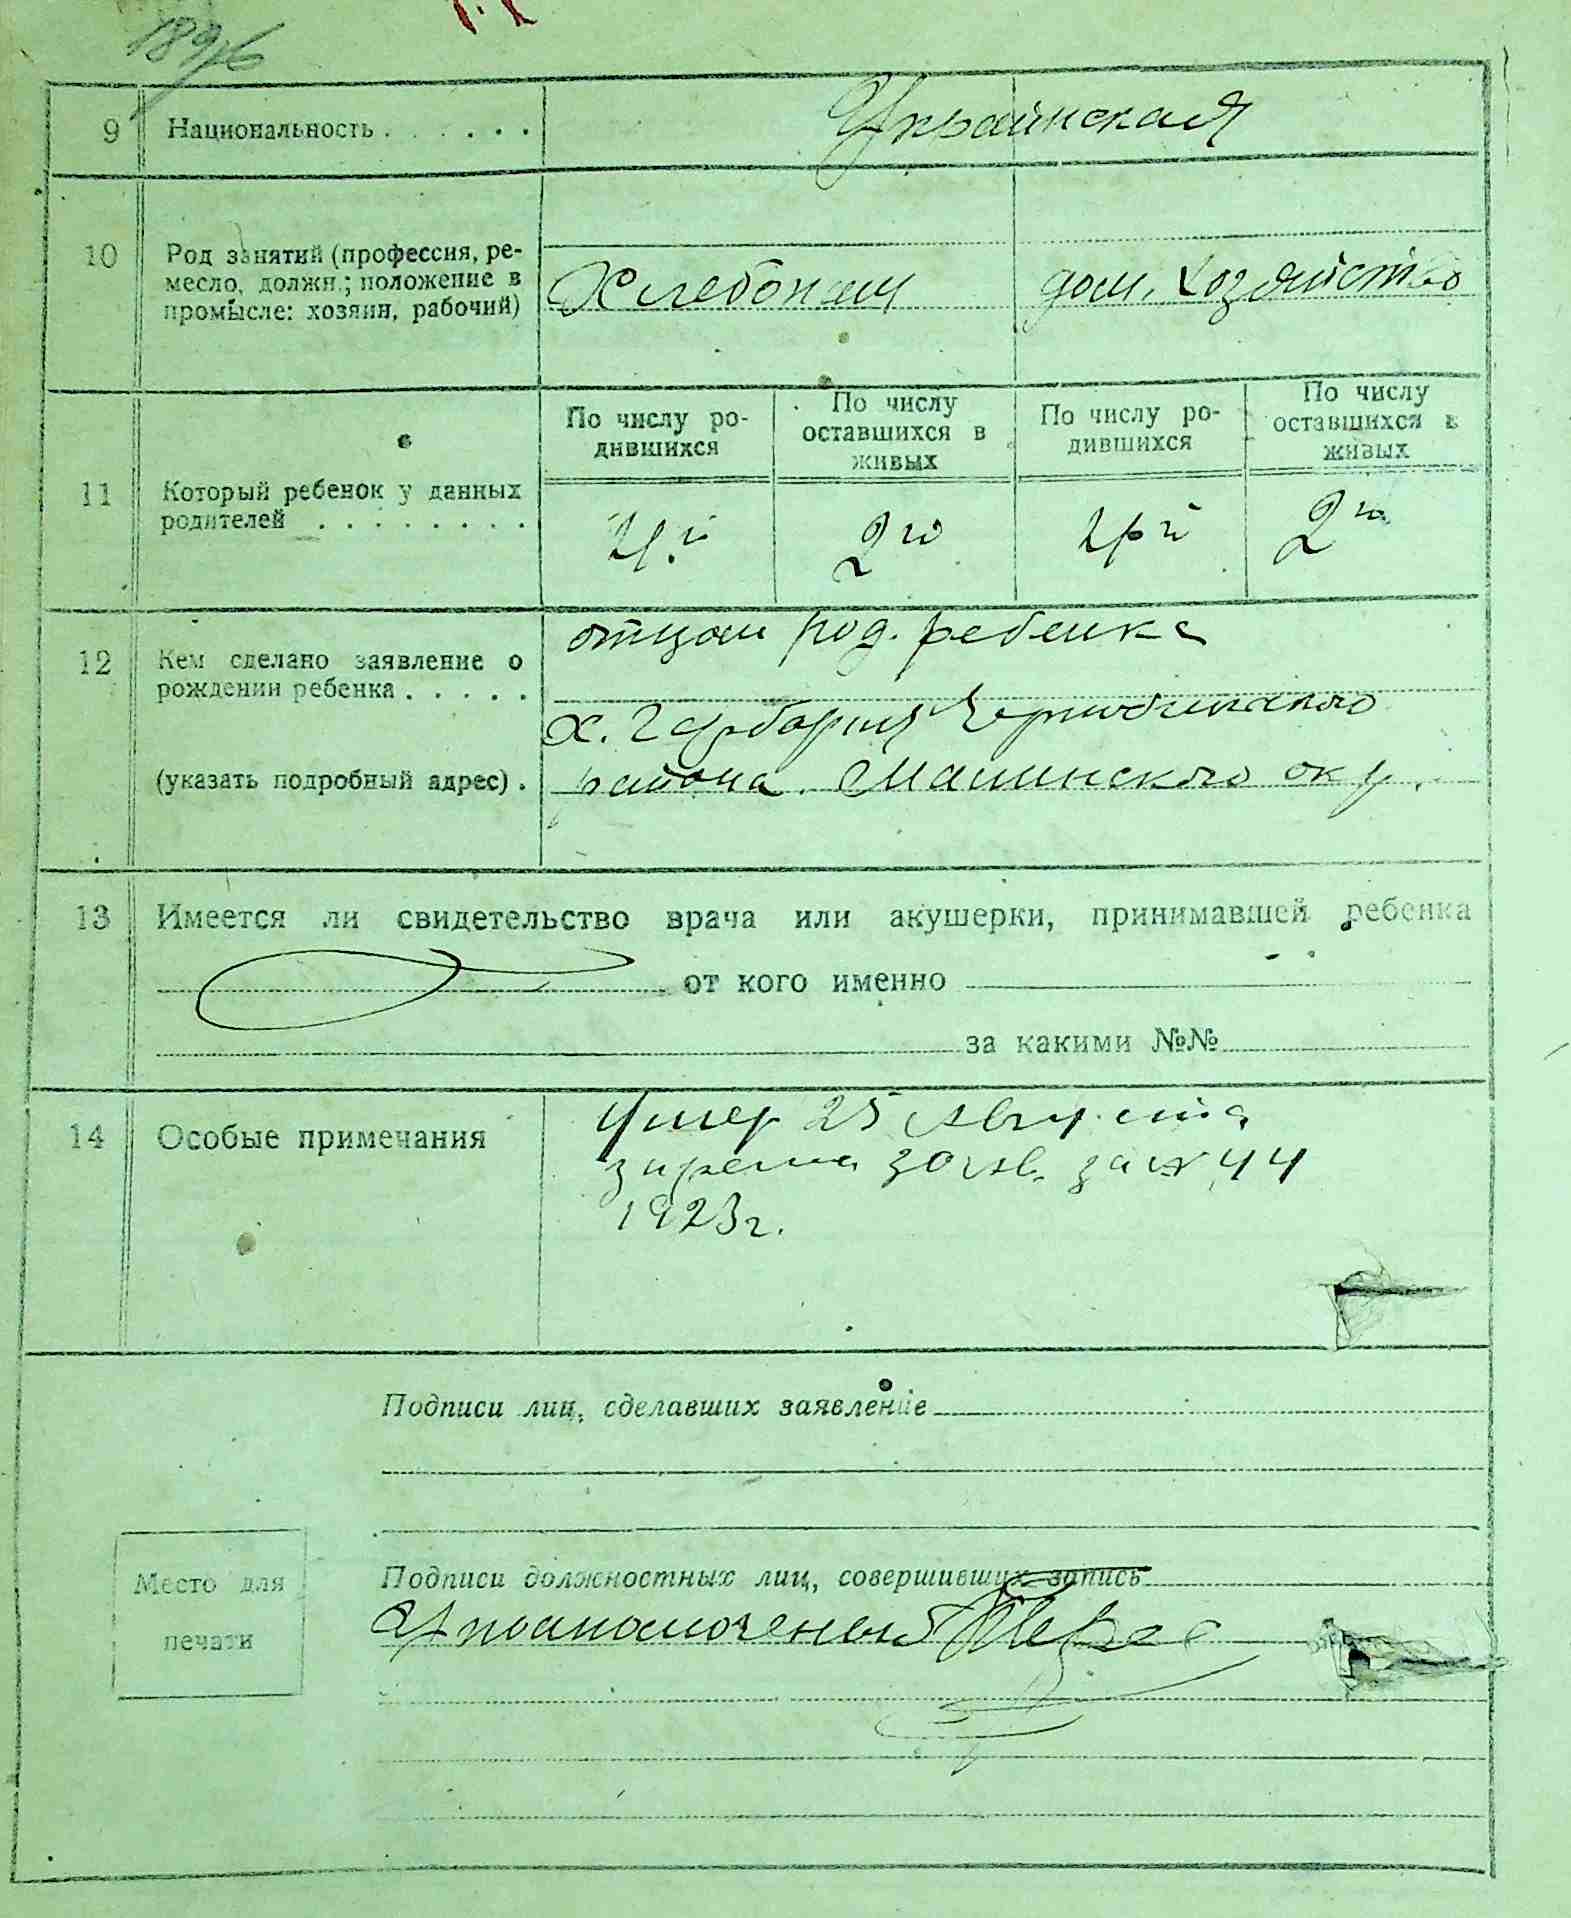 1896
9 Национальность . . . . . . Украинская
10 Род занятий (профессия, ре-
месло, должн.; положение в
промысле: хозяин, рабочий)
Хлебопаш дом. хозяйство
11 Который ребенок у данных
родителей . . . . . . . .
По числу ро-
дившихся
По числу
оставшихся в
живых
По числу ро-
дившихся
По числу
оставшихся в
живых
2й 2й
12 Кем сделано заявление о
рождении ребенка . . . . .
(указать подробный адрес) .
отцом род. ребенка
х.
района. окр.
13 Имеется ли свидетельство врача или акушерки, принимавшей ребенка
от кого именно
за какими №№
14 Особые примечания
Умер 25 Августа
30 Ав. за № 44
1923г.
Подписи лиц, сделавших заявление
Подписи должностных лиц, совершивших запись
Место для
печати